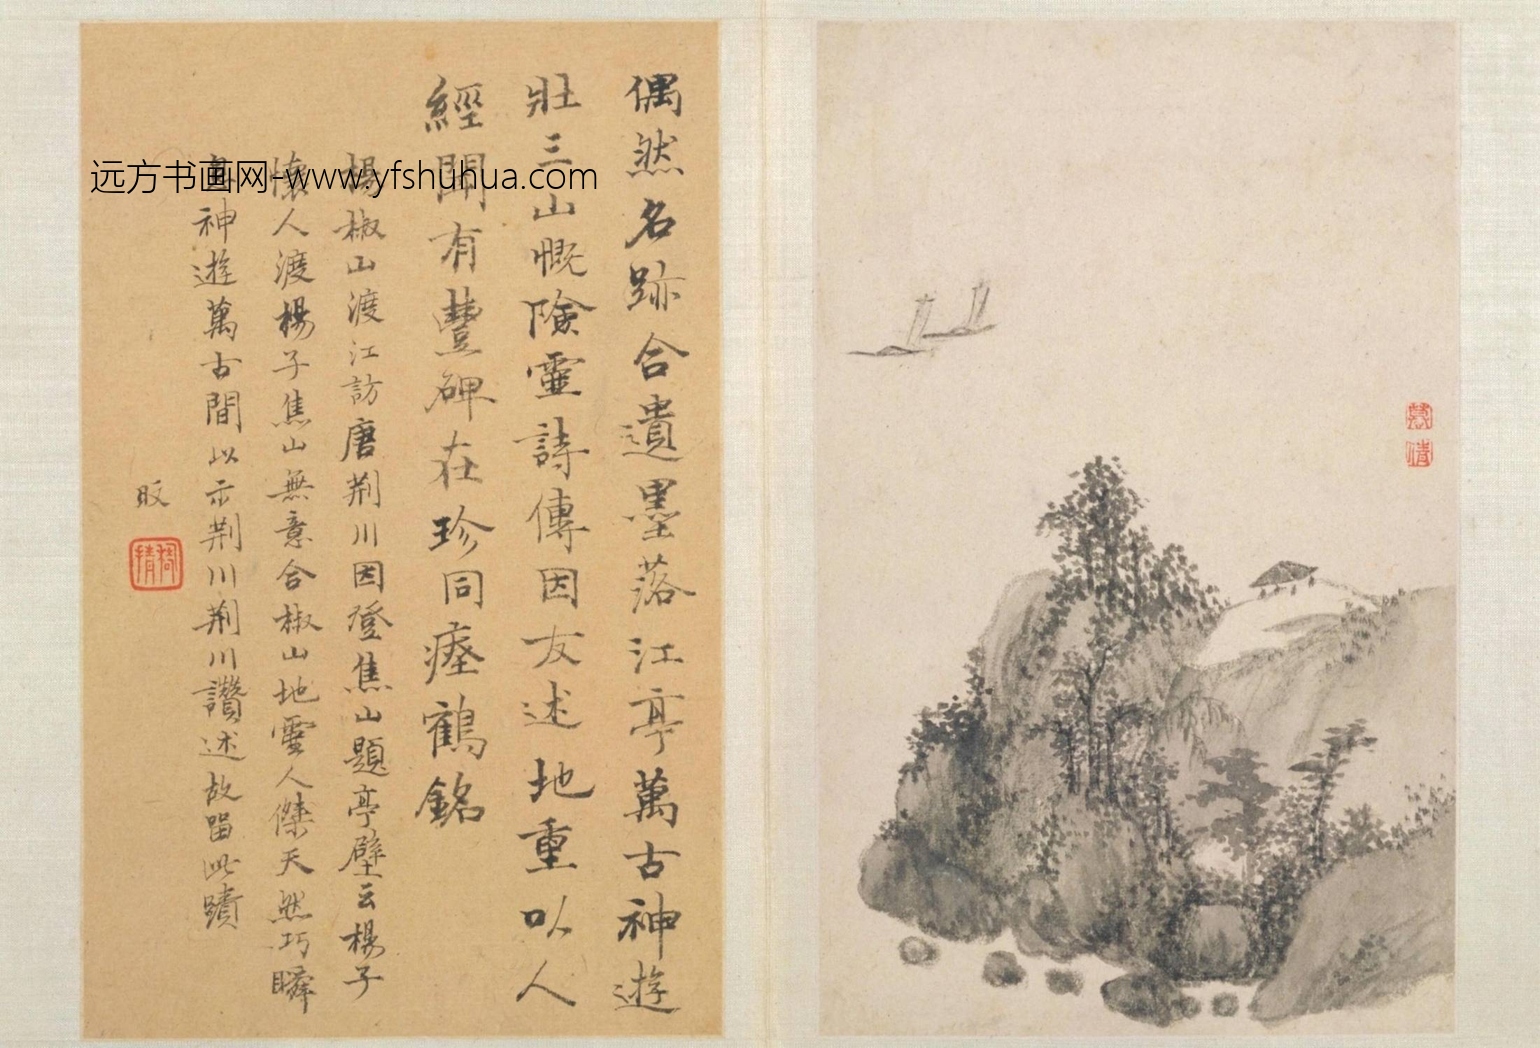 偶然名跡合遺墨落江亭萬古神遊
壯三山慨險靈詩傳因友述地重以人
經聞有豐碑在珍同瘞鶴銘
楊椒山渡江訪唐荆川因登焦山題亭壁云楊子
懷人渡楊子焦山無意合椒山地靈人傑天然巧瞬
息神遊萬古間以示荆川荆川讚述故留此蹟
昄
远方书画网-www.yfshuhua.com